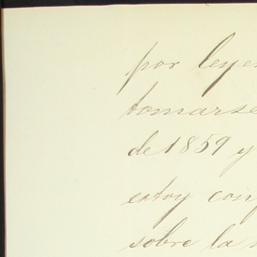 por leye
tomarse
de 1859 y
estoy con
sobre la